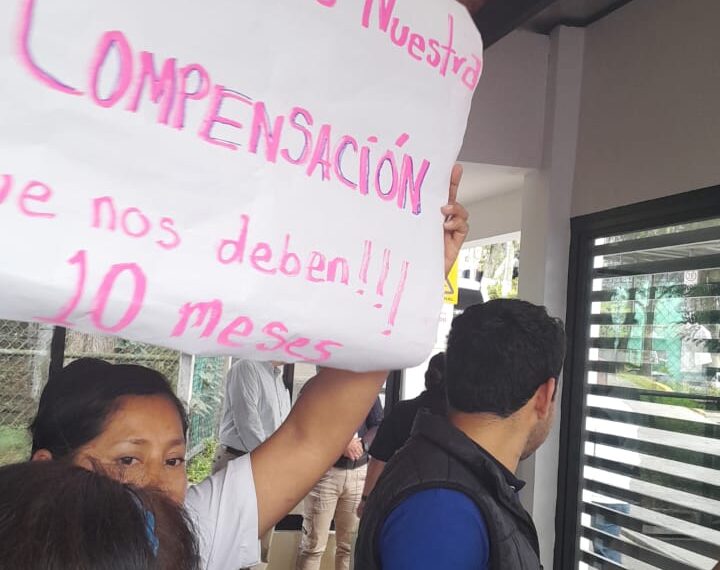 Nuestra
COMPENSACIÓN
ue nos deben!!!
10 meses